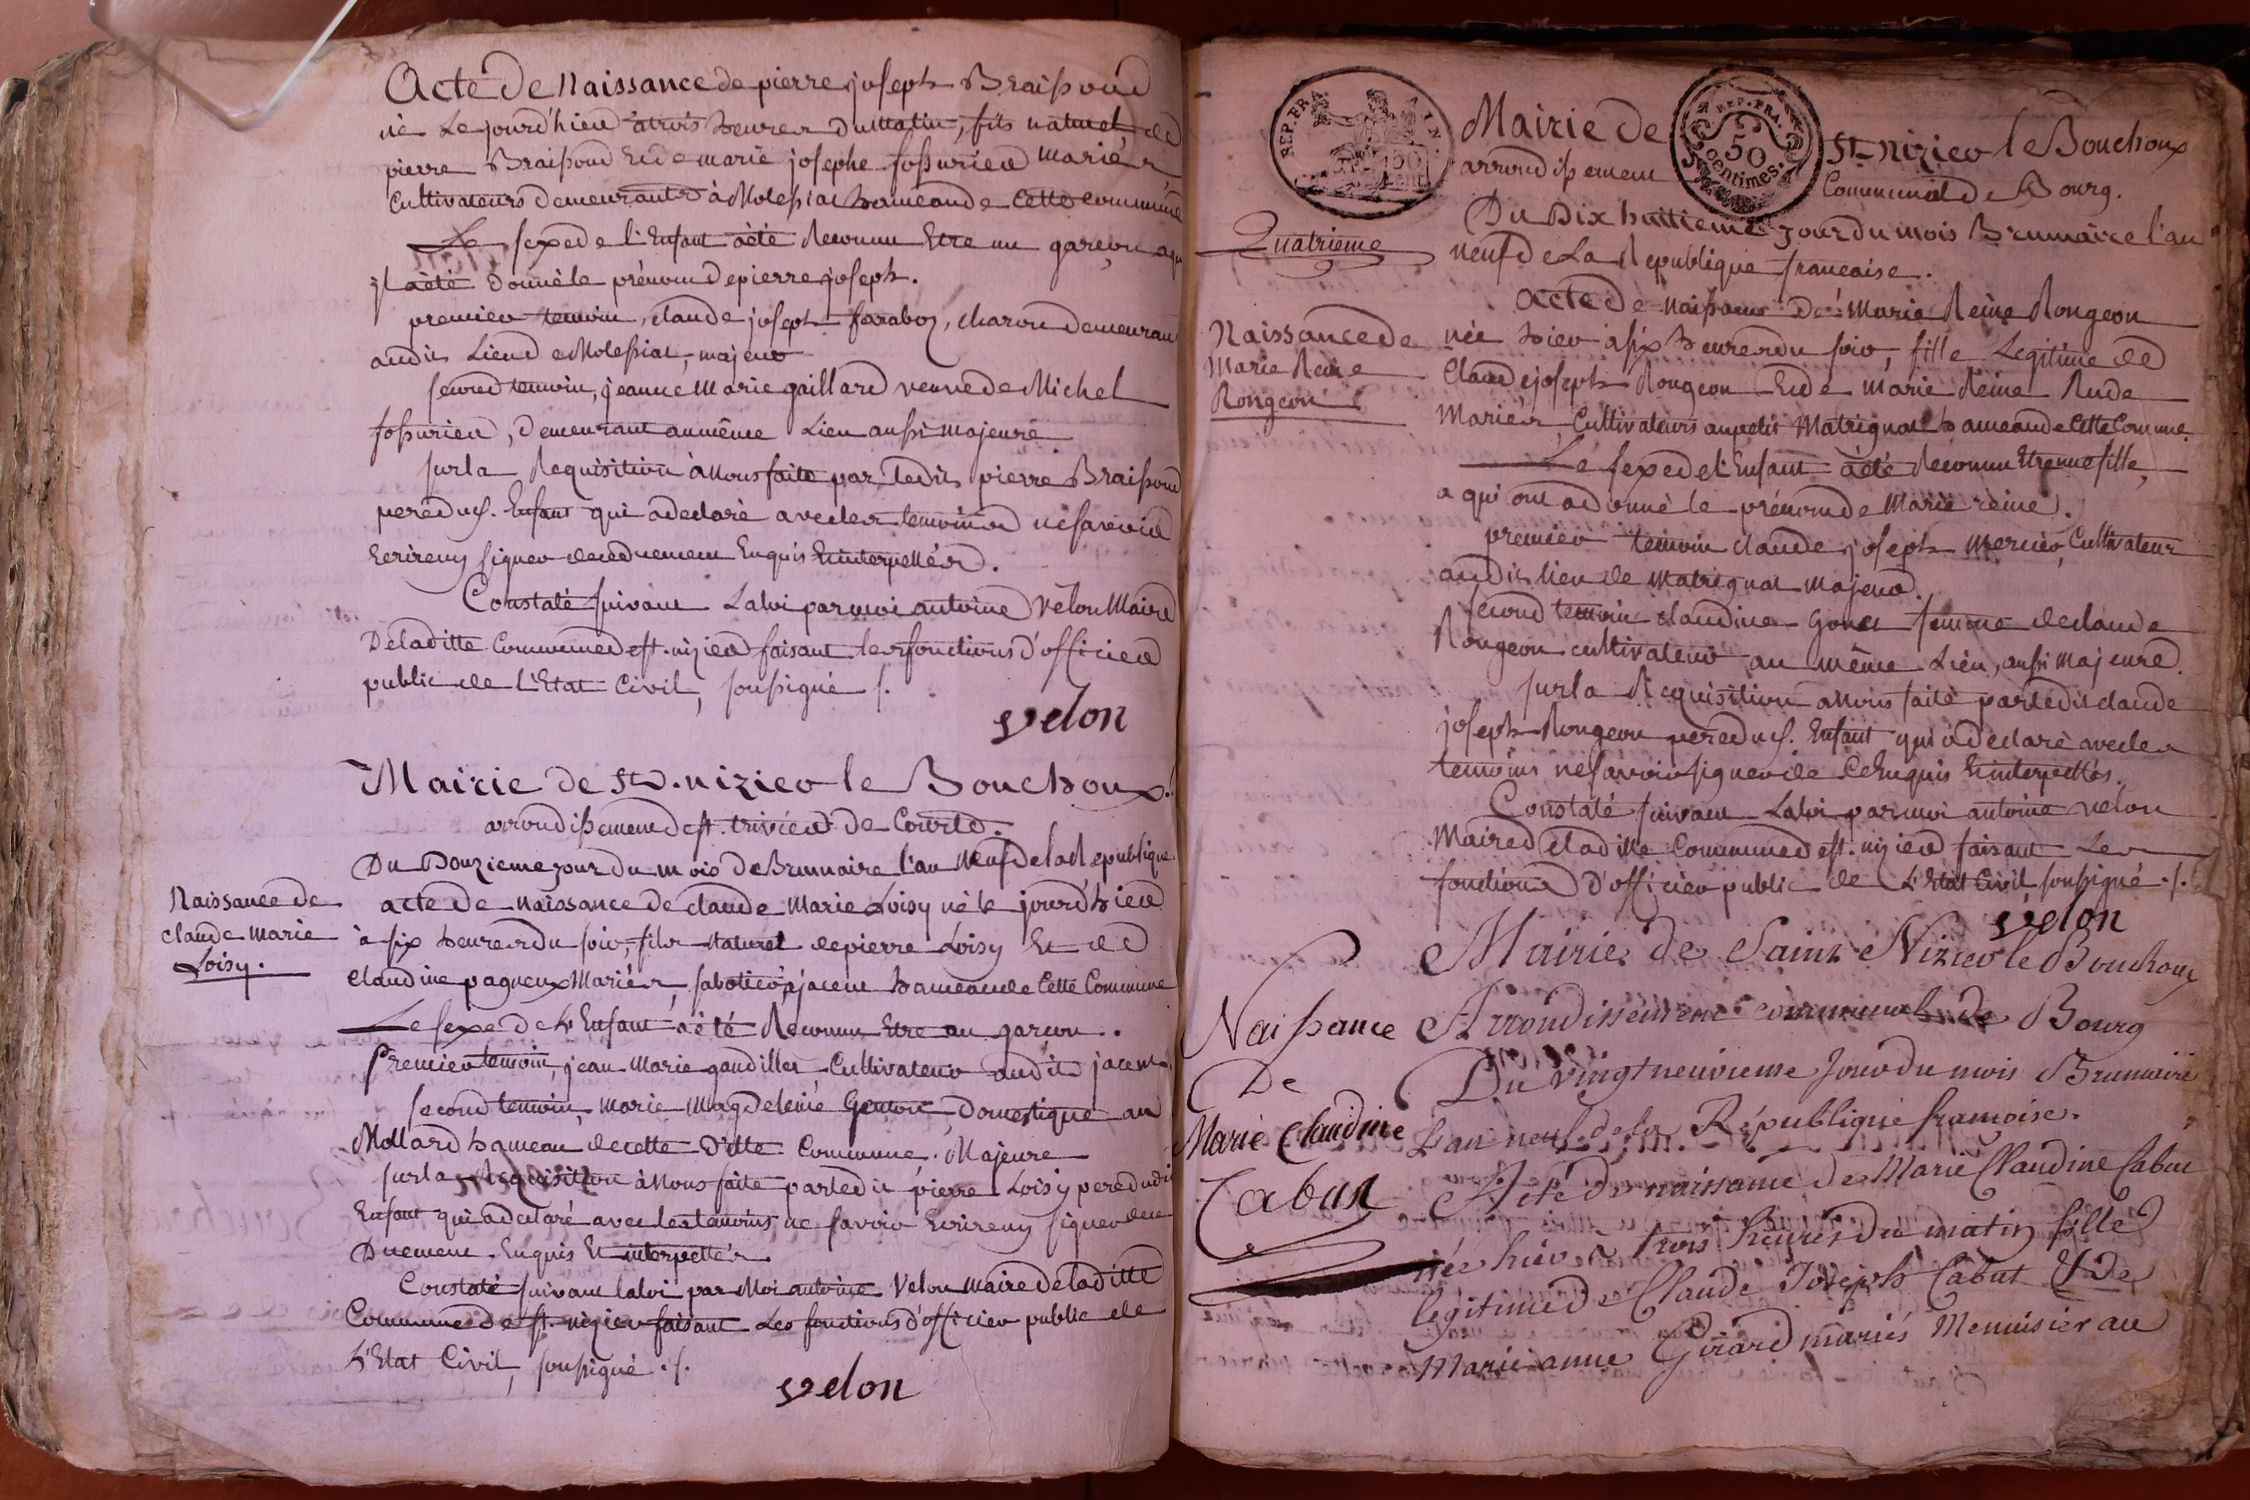 Acte de Naissance de pierre joseph Braissoud
né Le jourd'hier à trois heures du matin, fils naturel de
pierre Braissoud Et de marie josephe fossurier Mariés
Cultivateurs demeurants à Molessiat hameau de Cette commune
Le sexe de l'Enfant a été Reconnu Etre un garçon a qui
jl a été donné le prénom de pierre joseph.
premier temoin, claude joseph faraboz, charon demeurant
audit Lieu de Molessiat, majeur
second temoin, jeanne Marie gaillard veuve de Michel
fossurier, demeurant au même Lieu aussi majeure
sur la Requisition à Nous faite par Ledit pierre Braissoud
pere dud. Enfant qui a declaré avec les temoins ne savoir
Ecrire ny signer de ce duement Enquis Et interpellés.
Constaté suivant La loi par moi antoine Velon Maire
De laditte Commune de st. nizier faisant les fonctions d'officier
public de L'Etat Civil, soussigné ./.
velon
Mairie de St. nizier le Bouchoux.
arrondissement de st. trivier de Courte.
Du Douzieme jour du mois de Brumaire l'an Neuf de la Republique
Naissance de
claude Marie
Loisy.
acte de naissance de claude Marie Loisy né le jourd'hier
à six heures du soir, fils Naturel de pierre Loisy Et de
claudine pagneux Mariés, sabotier à jacent hameau de Cette Commune
Le sexe de L'Enfant a été Reconnu Etre un garçon.
Premier temoin, jean Marie gaudiller Cultivateur audit jacent
second temoin, marie Magdeleine Genton, Domestique au
Mollard hameau de cette ditte Commune. Majeure
sur la Requisition à Nous faite par Ledit pierre Loisy pere dudit
Enfant qui a declaré avec les temoins ne savoir Ecrire ny signer de ce
Duement Enquis Et interpellés
Constaté suivant la loi par Moi antoine Velon Maire de laditte
Commune de st. nizier faisant Les fonctions d'officier public de
L'Etat Civil, soussigné ./.
velon
REP. FRA.
REP. FRA.
50
centimes.
Mairie de St. nizier le Bouchoux
arrondissement Communal de Bourg.
Quatrieme
Du Dix huitieme jour du mois Brumaire l'an
neuf de La Republique francaise.
Naissance de
Marie Reine
Rongeon
acte de naissance de Marie Reine Rongeon
née hier à six heures du soir, fille Legitime de
Claude joseph Rongeon Et de Marie Reine Rude
Mariés, Cultivateurs au petit Matrignat hameau de Cette Commune.
Le sexe de l'Enfant a été Reconnu Etre une fille,
a qui on a donné le prénom de Marie reine.
premier temoin claude joseph Mercier, Cultivateur
audit lieu de Matrignat majeur.
second temoin claudine femme de claude
Rongeon cultivateur au même Lieu, aussi Majeure.
sur la Requisition a Nous faite par ledit claude
joseph Rongeon pere dud. Enfant qui a declaré avec les
temoins ne savoir signer de ce Enquis Et interpellés.
Constaté suivant La loi par moi antoine velon
Maire de laditte Commune de st. nizier faisant Les
fonctions d'officier public de L'Etat Civil soussigné ./.
velon
Naissance
De
Marie Claudine
Cabut
Mairie de Saint Nizier le Bouchoux
Arrondissement communal de Bourg
Du vingt neuvieme jour du mois Brumaire
L'an neuf de la République francoise.
Acte de naissance de Marie Claudine Cabut
née hier a trois heures du matin fille
légitime de Claude Joseph Cabut & de
Marie anne Girard mariés Menuisier au